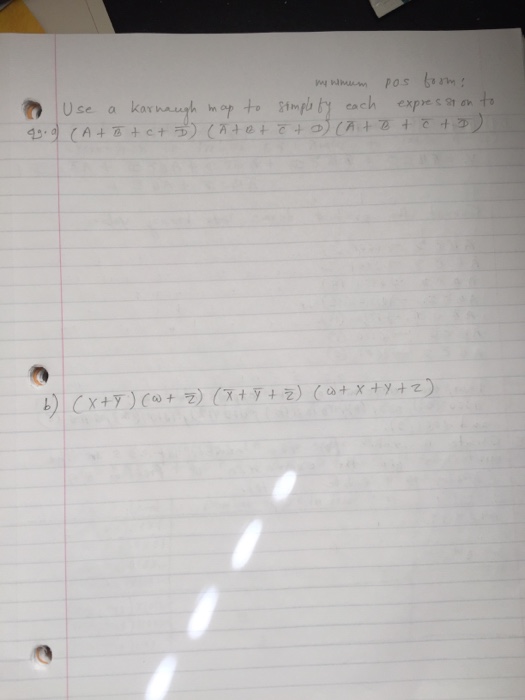 minimum pos form:
Use a Karnaugh map to simplify each expression to
49. a) (A + B̅ + C + D̅) (A̅ + B + C̅ + D) (A̅ + B̅ + C̅ + D̅)
b) (X + Y̅) (W + Z̅) (X̅ + Y̅ + Z̅) (W + X + Y + Z)